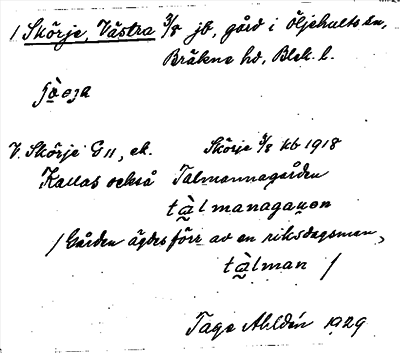 / Skörje, Västra 3/8 jb, gård i Öljehults sn,
Bräkne hd, Blek. l.
V. Skörje G 11, ek. Skörje 3/8 kb 1918
Kallas också Talmannagården
tàlmanagaren
/ Gården ägdes förr av en riksdagsman,
tàlman /
Tage Ahldén 1929